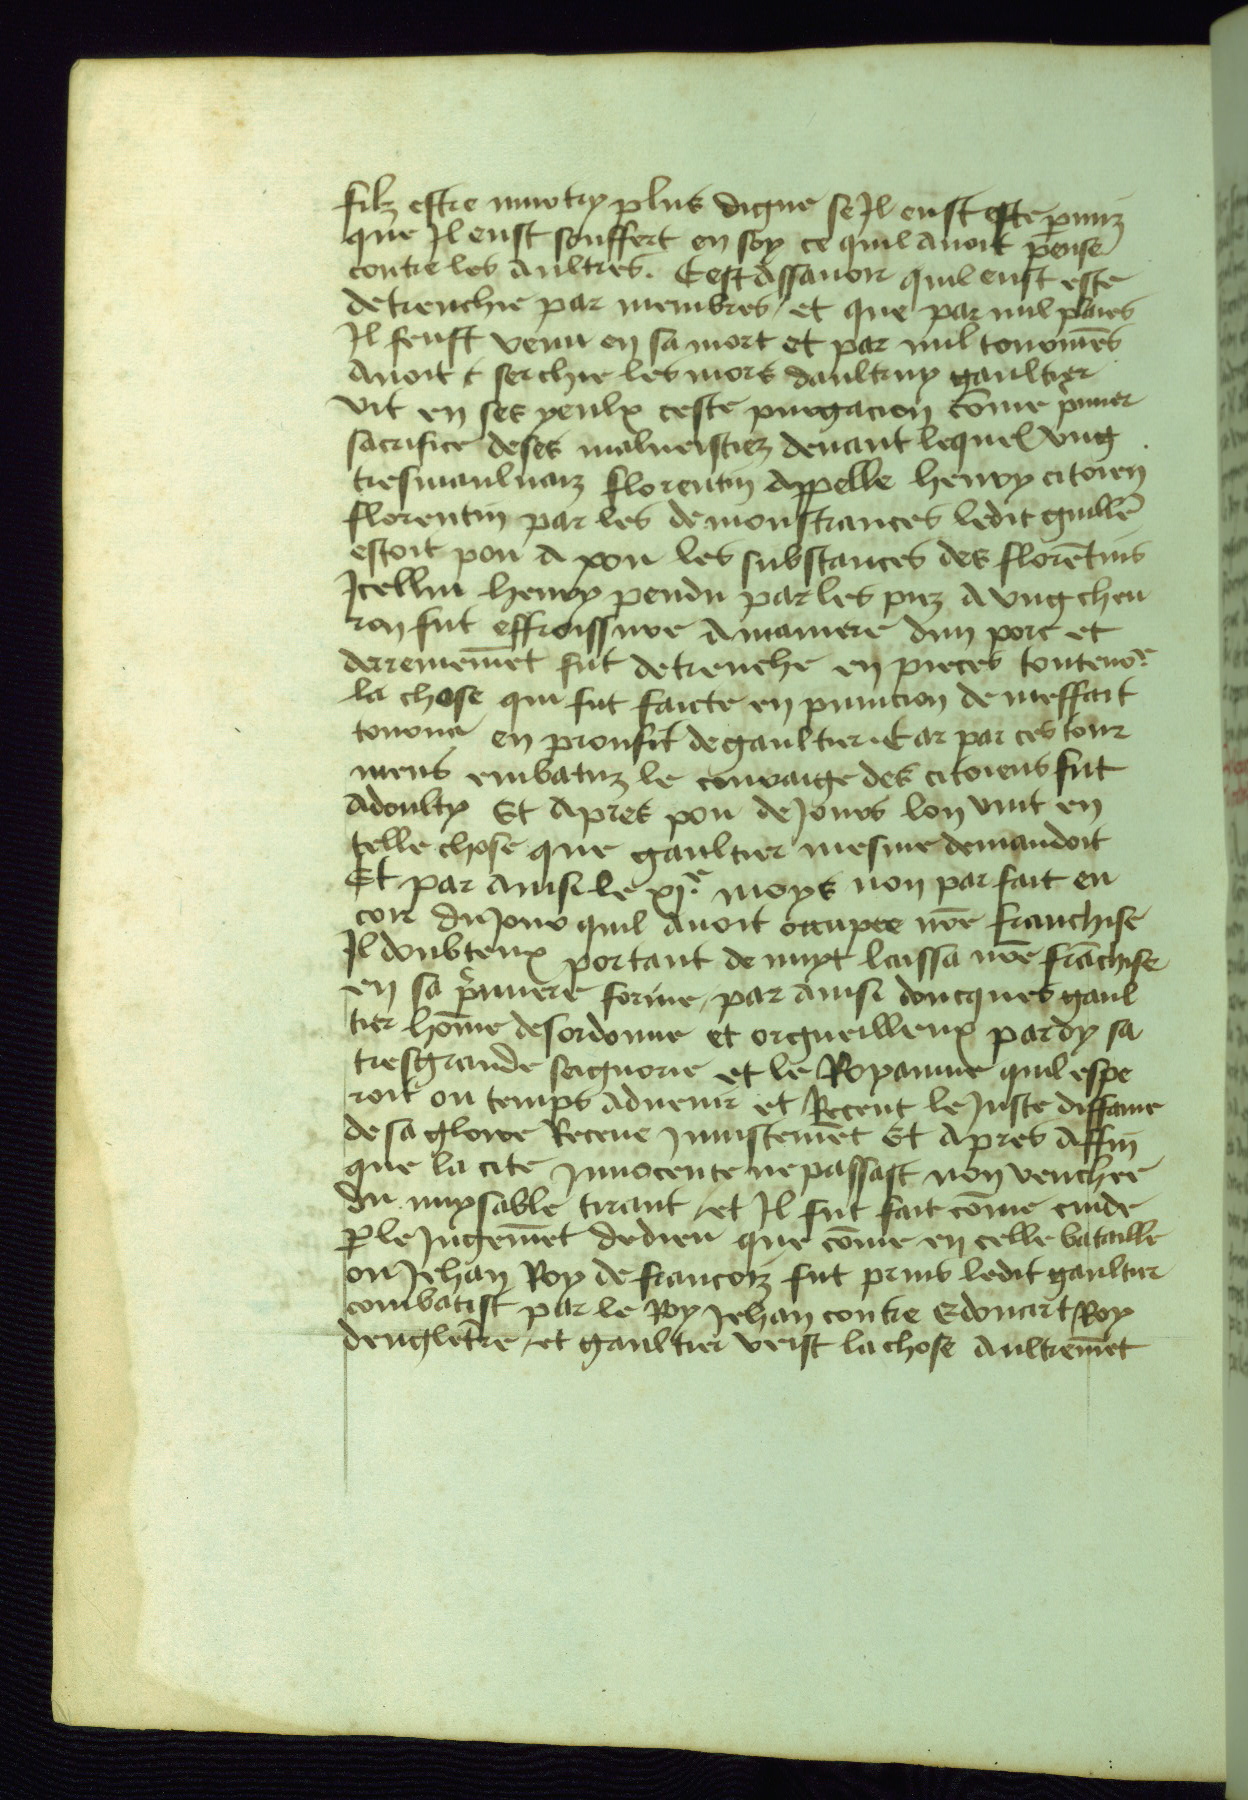 filz estre murtry plus digne se Il eust este puniz
que Il eust souffert en soy ce quil avoit pense
contre les aultres. Cest assavoir quil eust este
detrenchie par membres / et que par mil plaies
Il feust venu en sa mort et par mil tourmēs
avoit serchie les mors daultruy gaultier
vit en ses yeulx ceste purgacion cōme pmier
sacrifice de ses malveistiez devant lequel ung
tresmaulvaiz florentin appelle henry citoien
florentin par les demonstrances ledit guillē
estoit pou a pou les substances des florētins
Icellui henry pendu par les piez a ung chev
ron fut effroissure a maniere dun porc et
derrenemēt fut detrenche en pieces
la chose qui fut faicte en punicion de meffait
tourna en proufit de gaultier. Car par ces tour
mens embatuz le couraige des citoiens fut
adoulcy Et apres pou de Jours lon vint en
telle chose que gaultier mesme demandoit
Et par ainsi le xj.e moys non parfait en
cor du Jour quil avoit occupee nrē franchise
Il doubteux portant de nuyt laissa nrē frāchise
en sa pmiere forme / par ainsi doucques gaul
tier hōme desordonne et orgueilleux pardy sa
tresgrande seignorie et le Royaume quil espe
roit ou temps advenir et Receut le Juste diffame
de sa gloire Receue Jniustemēt Et apres affin
que la cite Jnnocente ne passast non vēchee
du nuysable tirant / et Il fut fait cōme cuide
p le Jugemēt de dieu que cōme en celle bataille
ou Jehan Roy de francoiz fut prins ledit gaultier
combatist par le Roy Jehan contre Edouart Roy
dengletrē / et gaultier veist la chose aultremēt